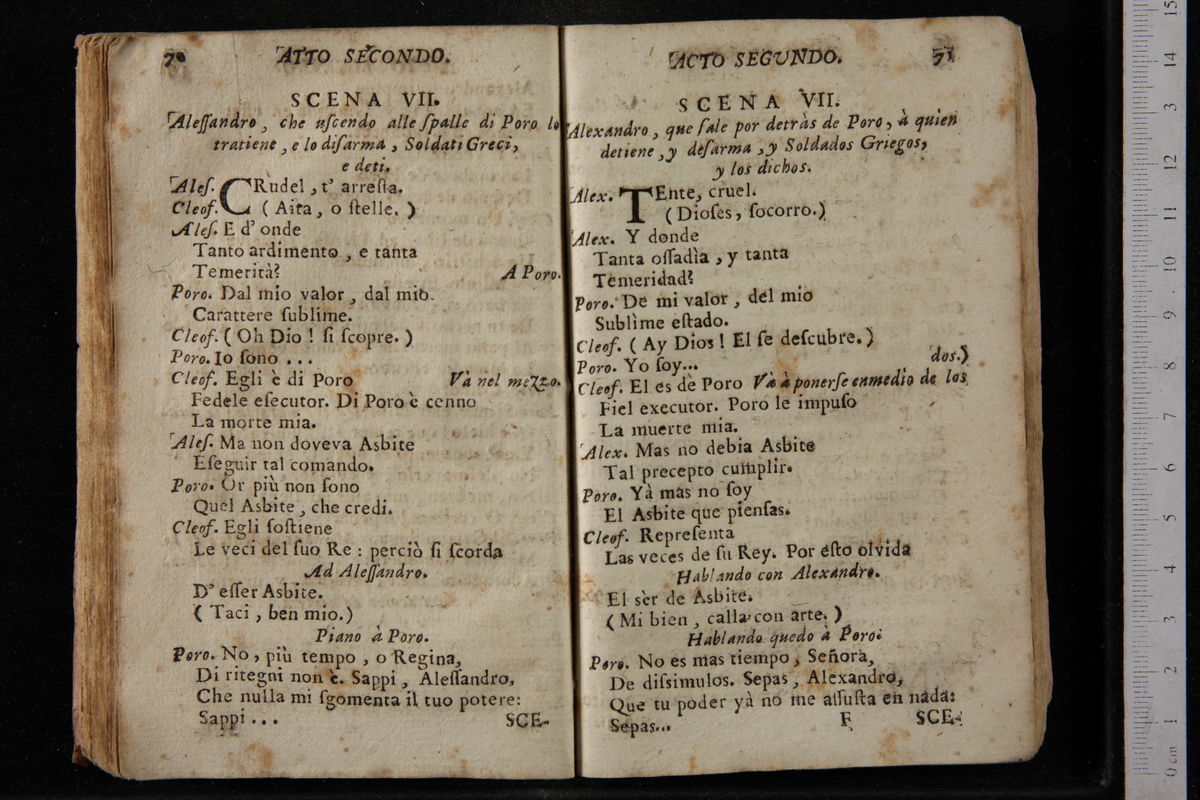 70 ATTO SECONDO.
SCENA VII.
Aleſſandro, che uſcendo alle ſpalle di Poro lo
tratiene, e lo diſarma, Soldati Greci,
e deti.
Aleſ. CRudel, t' arreſta.
Cleof. (Aita, o ſtelle.)
Aleſ. E d' onde
Tanto ardimento, e tanta
Temerità? A Poro.
Poro. Dal mio valor, dal mio
Carattere ſublime.
Cleof. (Oh Dio! ſi ſcopre.)
Poro. Io ſono ...
Cleof. Egli è di Poro Và nel mezzo.
Fedele eſecutor. Di Poro è cenno
La morte mia.
Aleſ. Ma non doveva Asbite
Eſeguir tal comando.
Poro. Or più non ſono
Quel Asbite, che credi.
Cleof. Egli ſoſtiene
Le veci del ſuo Re: perciò ſi ſcorda
Ad Aleſſandro.
D' eſſer Asbite.
(Taci, ben mio.)
Piano à Poro.
Poro. No, più tempo, o Regina,
Di ritegni non è. Sappi, Aleſſandro,
Che nulla mi ſgomenta il tuo potere:
Sappi ... SCE-
ACTO SEGUNDO. 71
SCENA VII.
Alexandro, que ſale por detràs de Poro, à quien
detiene, y deſarma, y Soldados Griegos,
y los dichos.
Alex. TEnte, cruel.
(Dioſes, ſocorro.)
Alex. Y donde
Tanta oſſadìa, y tanta
Temeridad?
Poro. De mi valor, del mio
Sublìme eſtado.
Cleof. (Ay Dios! El ſe deſcubre.)
Poro. Yo ſoy... dos.)
Cleof. El es de Poro Và à ponerſe enmedio de los
Fiel executor. Poro le impuſo
La muerte mia.
Alex. Mas no debia Asbite
Tal precepto cumplir.
Poro. Yà mas no ſoy
El Asbite que pienſas.
Cleof. Repreſenta
Las veces de ſu Rey. Por eſto olvida
Hablando con Alexandro.
El sèr de Asbite.
(Mi bien, calla con arte.)
Hablando quedo à Poro.
Poro. No es mas tiempo, Señora,
De diſsimulos. Sepas, Alexandro,
Que tu poder yà no me aſſuſta en nada:
Sepas... F SCE-
0 cm 1 2 3 4 5 6 7 8 9 10 11 12 13 14 15